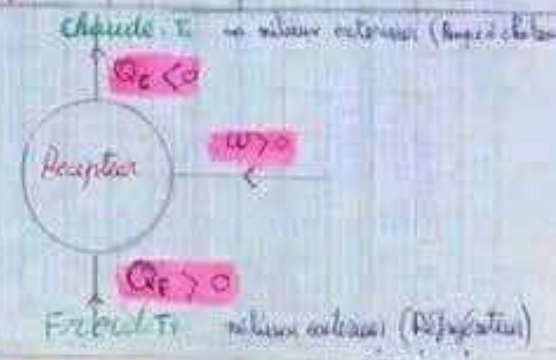 Chaude T₂ milieux exterieur (Pompe à chaleur
Qc < 0
W > 0
Recepteur
QF > 0
Froid T₁ milieux exterieur (Réfrigérateur)